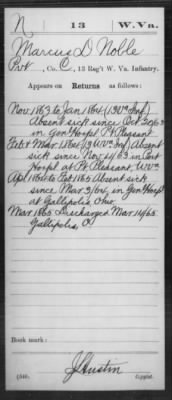 N | 13 | W. Va.
Marcus D Noble
Pvt, Co. C, 13 Reg't W. Va. Infantry.
Appears on Returns as follows:
Nov 1863 to Jan 1864 (13 WV Inf)
Absent sick since Oct 20/63
in Gen Hospl Pt Pleasant
Feb & Mar 1864 (13 WV Inf) Absent
sick since Nov 20/63 in Post
Hospl at Pt. Pleasant, W Va
Apl 1864 to Feb 1865 Absent sick
since Mar 3/64, in Gen Hospl
at Gallipolis, Ohio
Mar 1865 Discharged Mar 14/65
Gallipolis, O.
Book mark:
J Hustin
(546) Copyist.